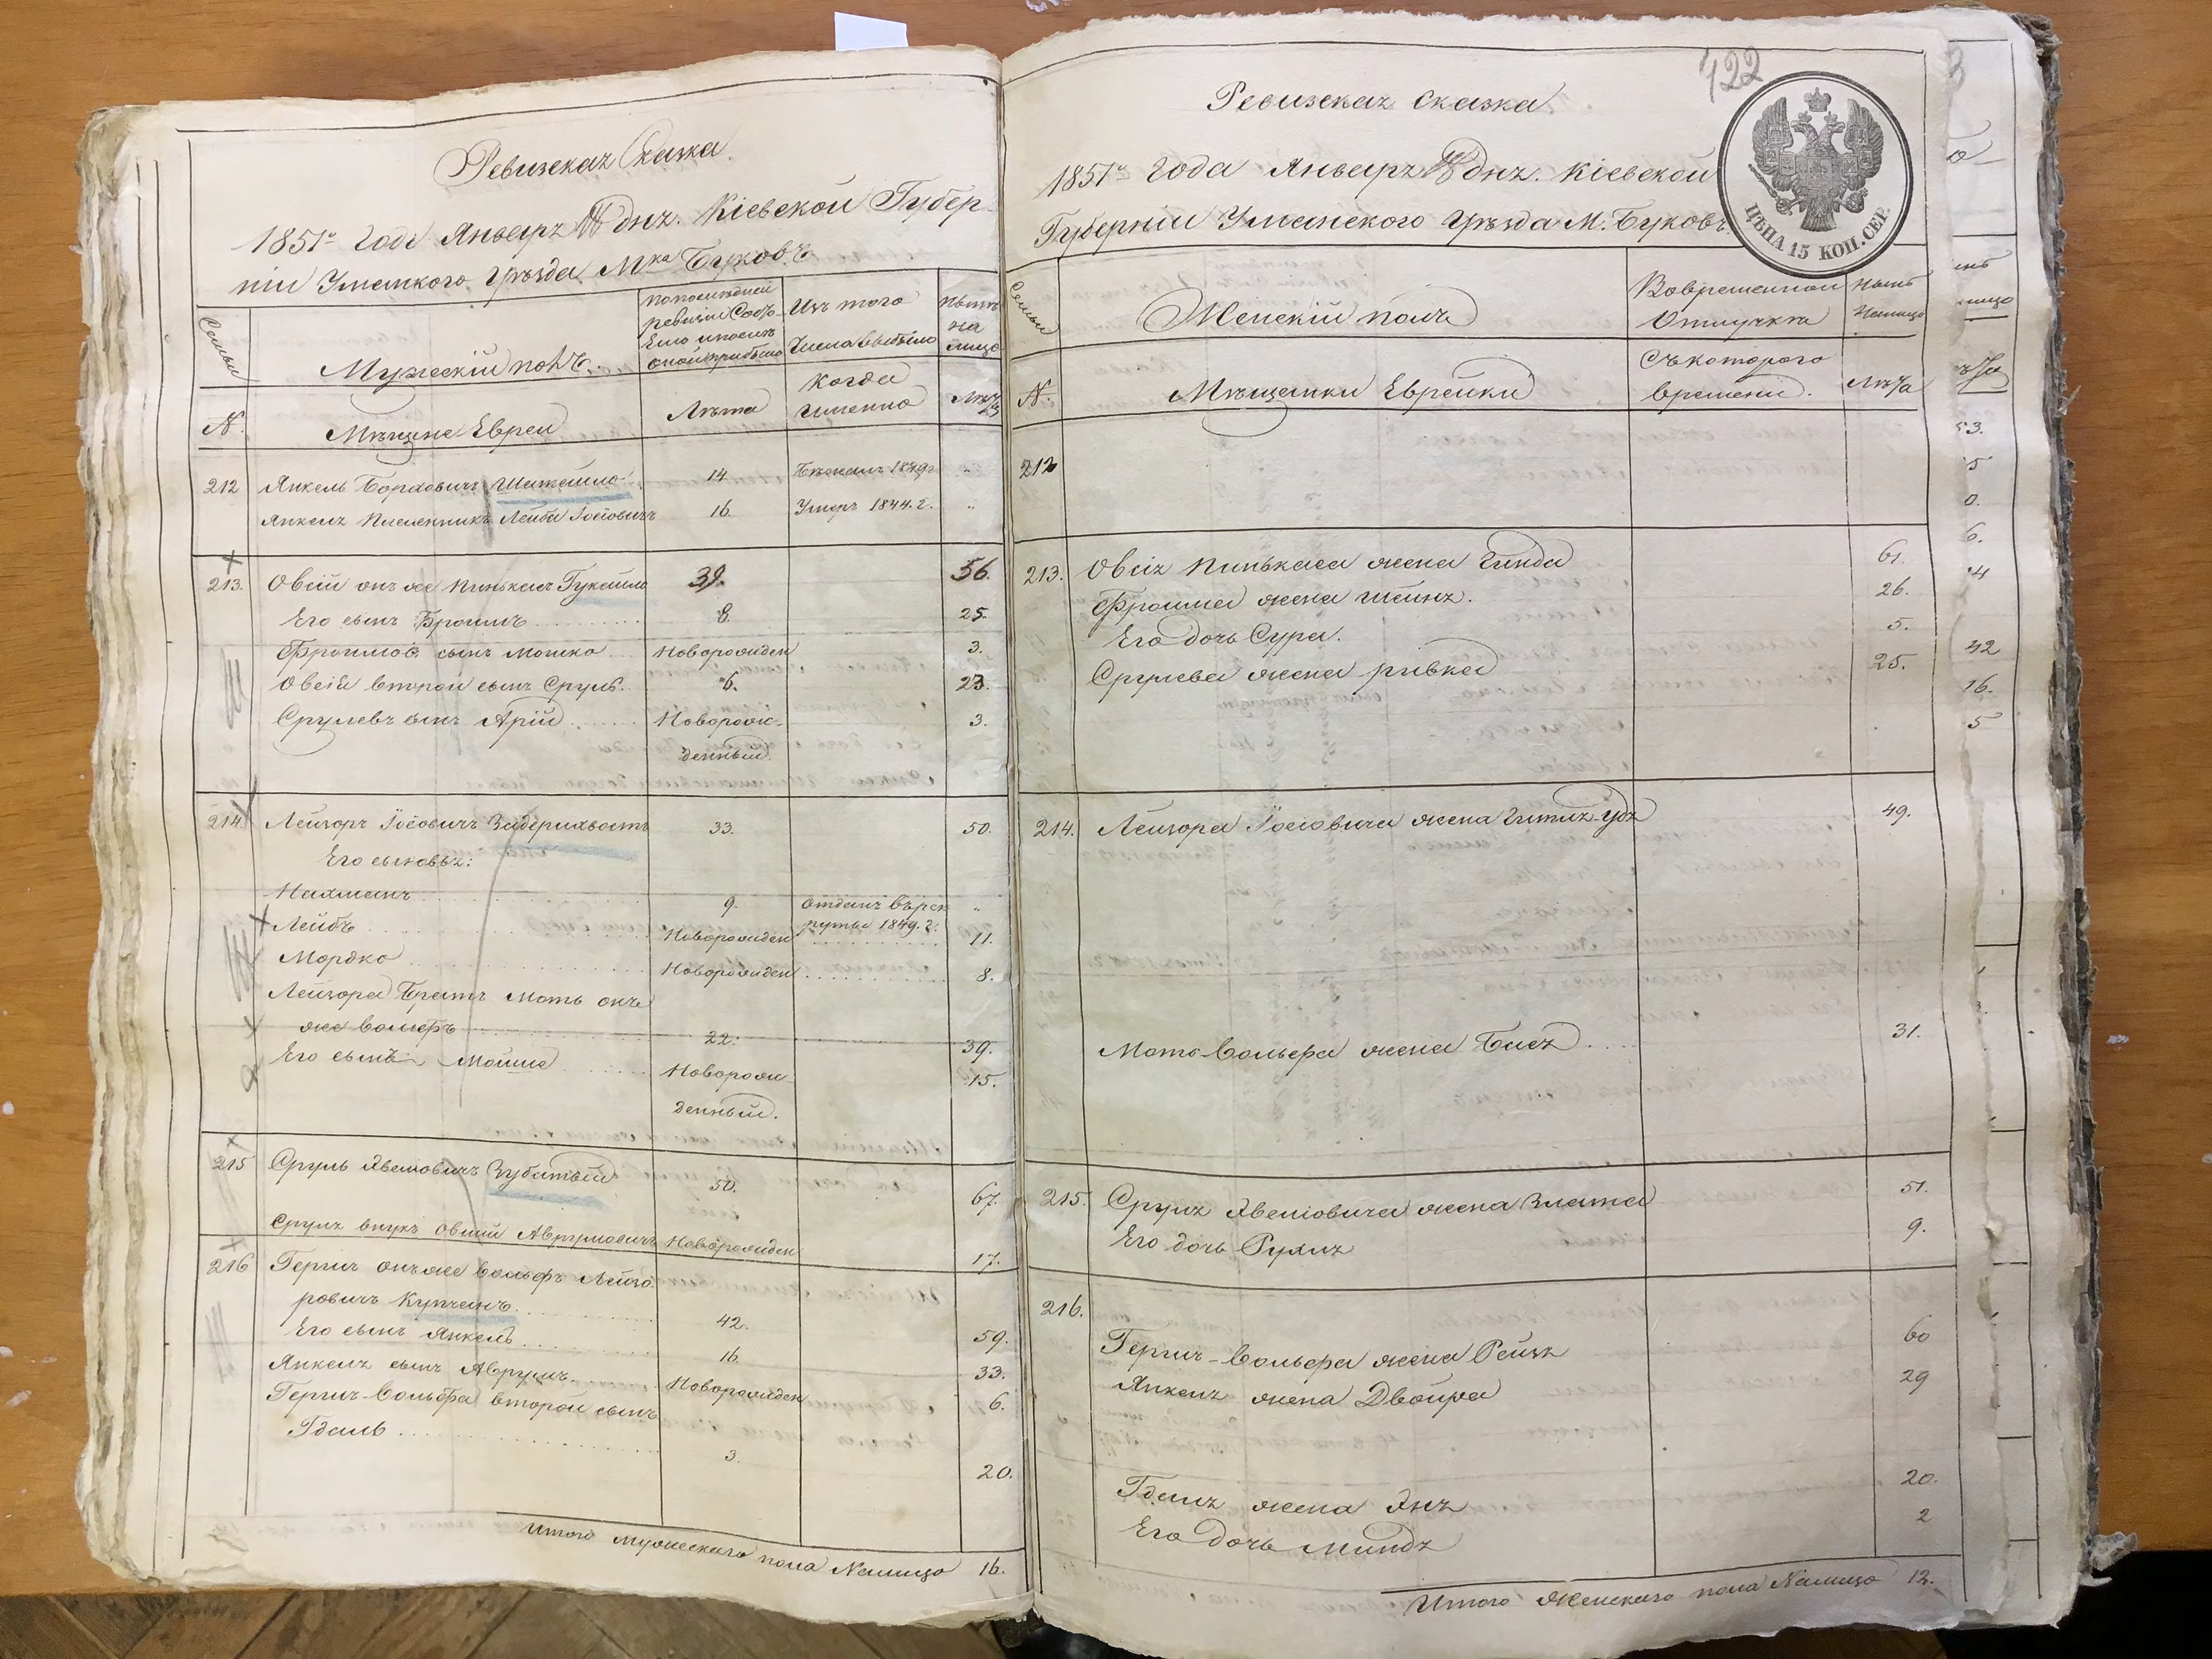 Ревизская Сказка.
1851го Года Января 18 дня. Кіевской Губер-
ніи Уманского Уѣзда М-ка Буковъ
Семьи
Мужескій полъ.
По последней ревизіи Состо-
яло и после оной прибыло
Изъ того
Числа выбыло
Ныне на лицо
N.
Мѣщане Евреи
Лѣта
когда именно
Лѣта
212 Янкель Борховичъ 14 Бежалъ 1849г „
Янкеля племенникъ Лейба Іосіовичъ 16. Умеръ 1844. г. „
213. Овсій онъ же Пинькасъ 39. 56.
Его сынъ Фроимъ 8. 25.
Фроимов сынъ Мошко Новорожден 3.
Овсія второй сынъ Сруль. 6. 23.
Срулевъ сынъ Арій Новорож-
денный. 3.
214. Лейзоръ Іосіовичъ Задерихвостъ 33. 50.
Его сыновья:
Нахманъ 9. отданъ въ рек-
руты 1849. г. „
Лейбъ Новорожден 11.
Мордко Новорожден 8.
Лейзора Братъ Моть онъ
же Вольфъ 22. 39.
Его сынъ Мойше Новорож-
денный. 15.
215 Сруль Явсиовичъ Зубатый 50. 67.
Сруля внукъ Овшій Аврумовичъ Новорожден 17.
216 Гершъ онъ же Вольфъ Лейзо-
ровичъ Купчанъ 42. 59.
Его сынъ Янкель 16. 33.
Янкеля сынъ Аврумъ. Новорожден 6.
Гершъ-Вольфа второй сынъ
Гдаль 3. 20.
Итого мужескаго пола Налицо 16.
422
Ревизская Сказка.
1851го Года Января 18 дня. Кіевской
Губерніи Уманского Уѣзда М. Буковъ
ЦѢНА 15 КОП. СЕР.
Семьи
Женскій полъ
Во временной Отлучке
Ныне Налицо
N.
Мѣщанки Еврейки
Съ которого времени.
Лѣта
212
213. Овсія Пинькаса жена Гинда 61.
Фроима жена Шейня. 26.
Его дочь Сура. 5.
Срулева жена Ривка 25.
214. Лейзора Іосіовича жена 49.
Моть-Вольфа жена Бася 31.
215. Сруля Явсиовича жена Злата 51.
Его дочь Рухля 9.
216.
Гершъ-Вольфа жена Рейзя 60
Янкеля жена Двойра 29
Гдаля жена Эня 20.
Его дочь Миндя 2
Итого Женскаго пола Налицо 12.